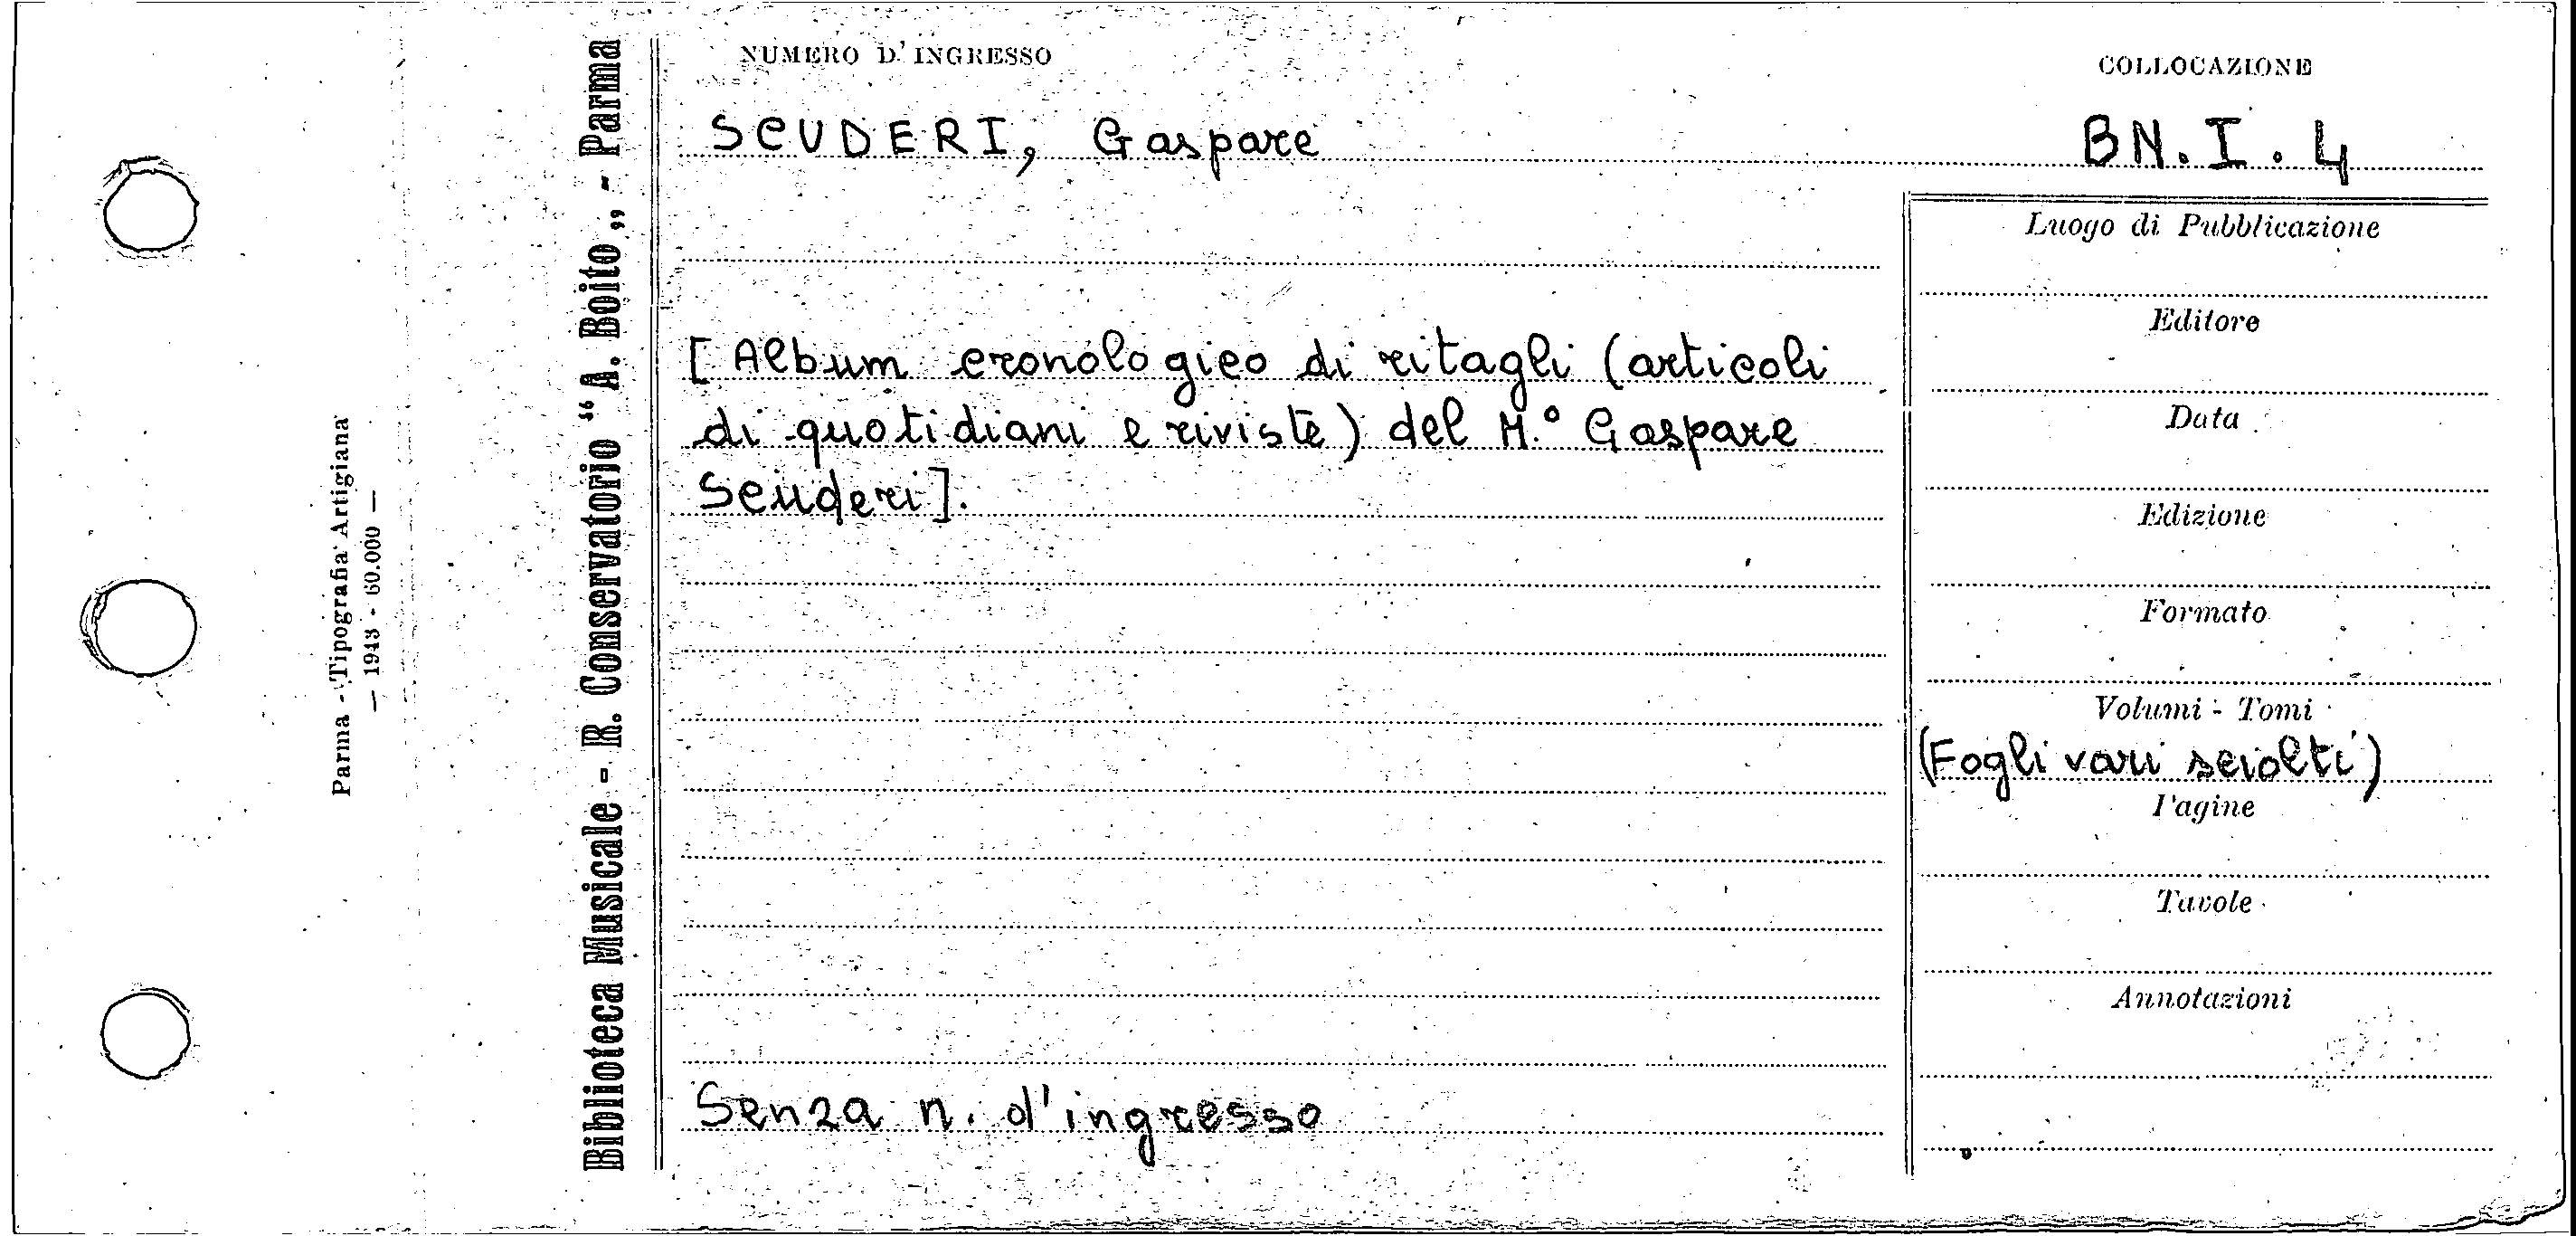 Parma - Tipografia Artigiana
— 1943 - 60.000 —
Biblioteca Musicale - R. Conservatorio “A. Boito„ - Parma
NUMERO D'INGRESSO
COLLOCAZIONE
SCUDERI, Gaspare
BN.I.4
[Album cronologico di ritagli (articoli
di quotidiani e riviste) del M.° Gaspare
Scuderi].
Senza n. d'ingresso
Luogo di Pubblicazione
Editore
Data
Edizione
Formato
Volumi - Tomi
(Fogli vari sciolti)
Pagine
Tavole
Annotazioni